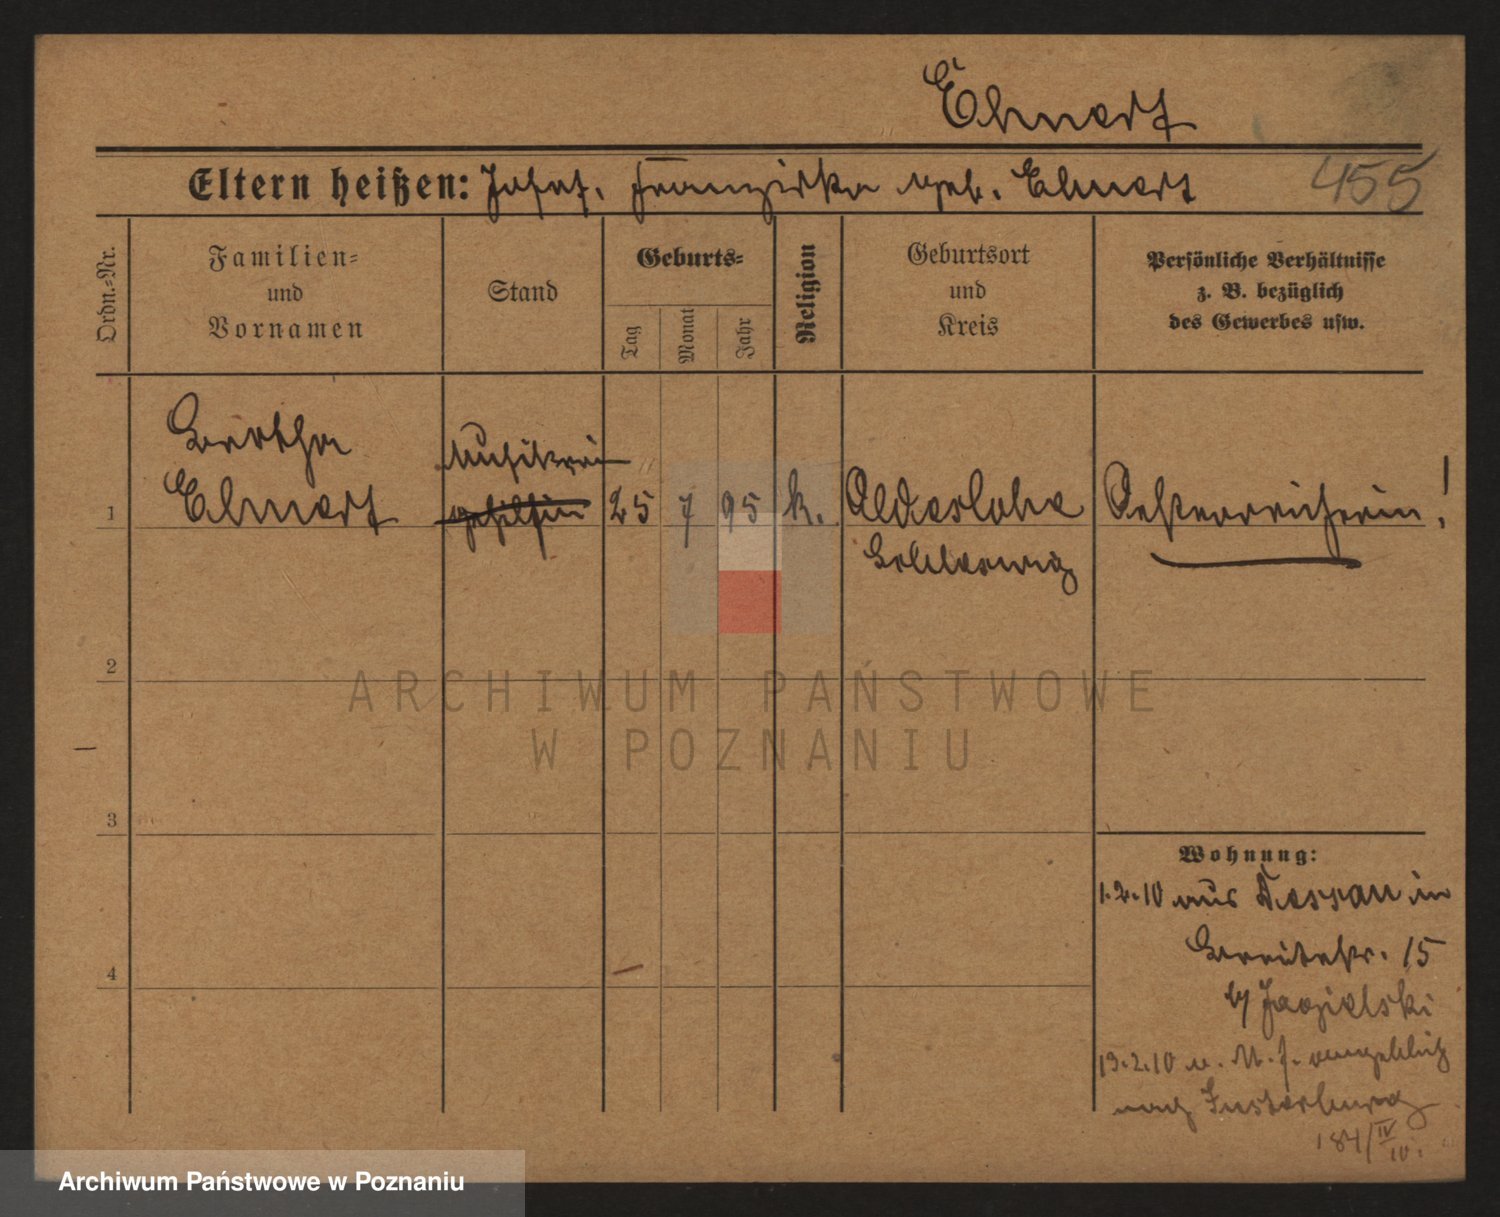 Ehnert
Eltern heißen: Josef, Franziska geb. Ehnert
455
Ordn.-Nr.
Familien-
und
Vornamen
Stand
Geburts-
Tag
Monat
Jahr
Religion
Geburtsort
und
Kreis
Persönliche Verhältnisse
z. B. bezüglich
des Gewerbes usw.
Bertha
Ehnert
Musikerin
gehilfin
1
25 7 95 k.
Oldeslohe
Schleswig
Oesterreicherin!
2
3
4
Wohnung:
1.2.10 aus Dessau in
Breitestr. 15
b/
13.2.10 angeblich
nach Insterburg
184/IV
10.
ARCHIWUM PAŃSTWOWE
W POZNANIU
Archiwum Państwowe w Poznaniu